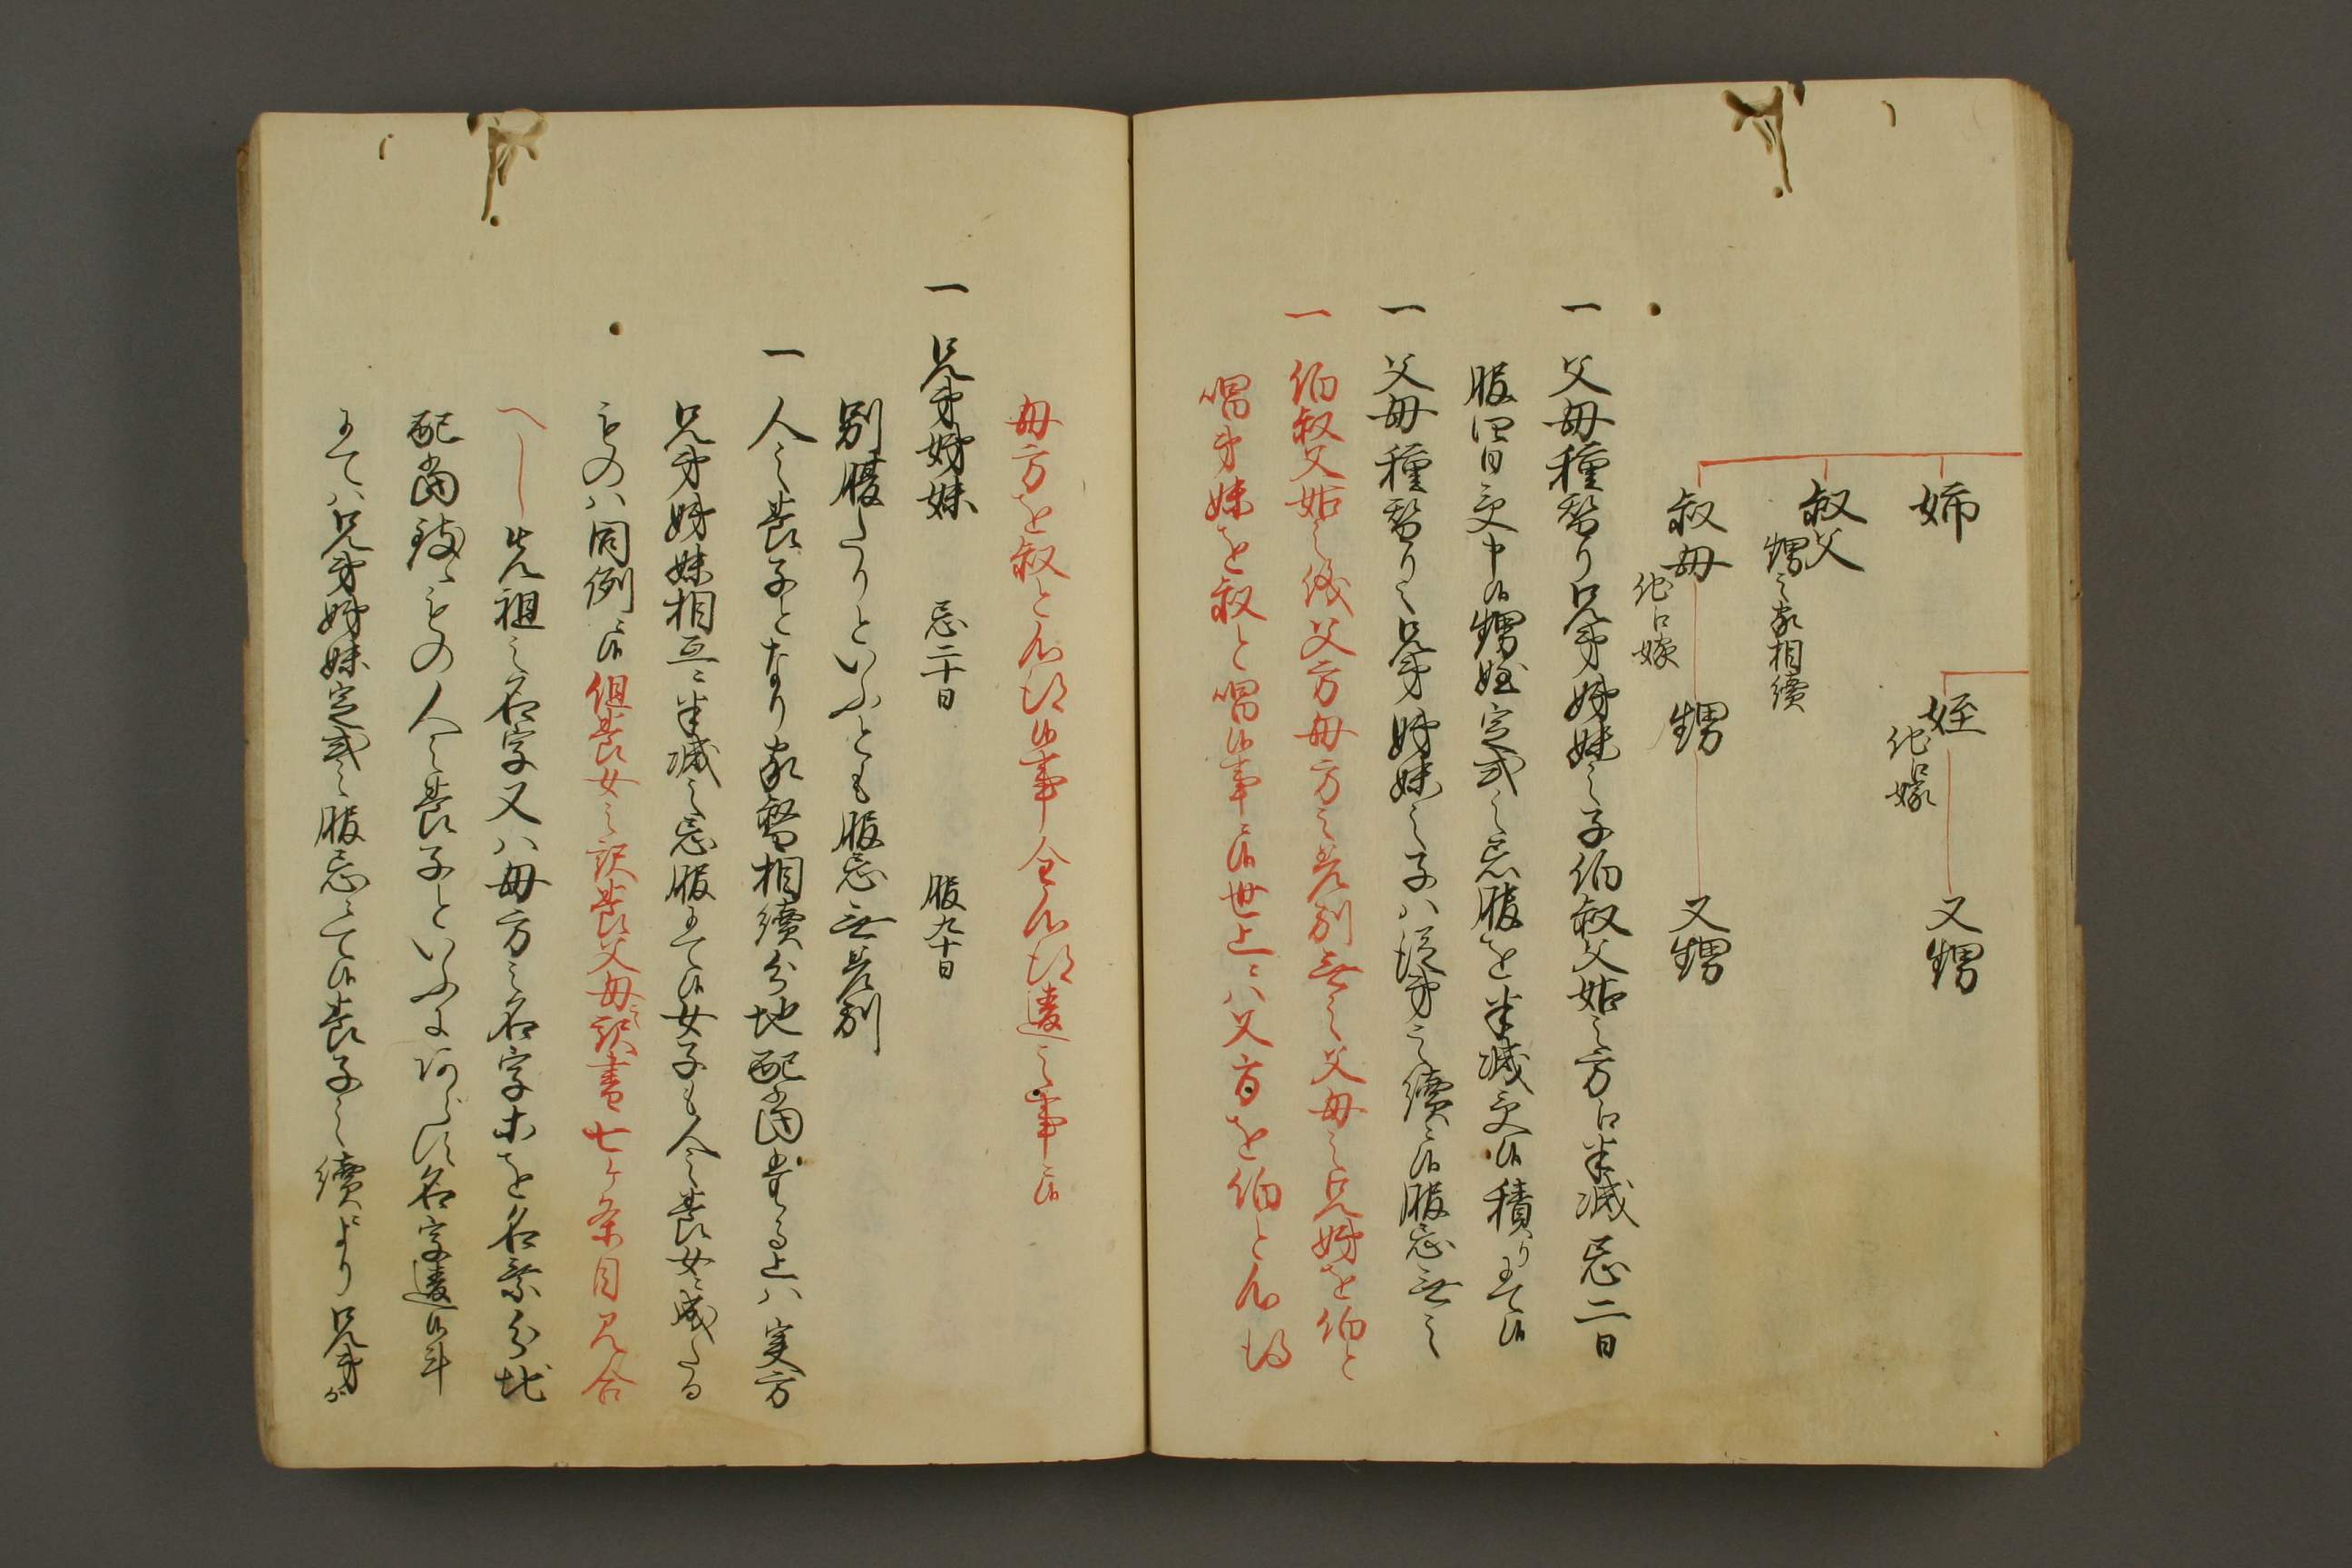 姉
姪
他口嫁
又甥
叔父
甥之家相續
叔母
他口嫁
甥
又甥
一 父母種替り兄弟姉妹之子伯叔父姑之方ニ半減忌二日
服四日受申候甥姪定式之忌服を半減受候積りニて候
一 父母種替り之兄弟姉妹之子ハ従弟之續ニ候服忌無之
一 伯叔父姑之儀父方母方之差別無之父母之兄姉を伯と
唱弟妹を叔と唱候事ニ候世上ニハ父方を伯と心得
母方を叔と心得候事全心得違之事ニ候
一 兄弟姉妹 忌二十日 服九十日
別腹たりといふとも服忌無差別
一 人之養子となり家督相續分地配當する上ハ実方
兄弟姉妹相互ニ半減之忌服ニて候女子も人之養女ニ成たる
ものハ同例ニ候但養女之訳養父母之訳書七ケ条目見合
へし 先祖之名字又ハ母方之名字等を名乗分地
配當致ものの人之養子といふにあらす名字違候斗
にてハ兄弟姉妹定式之服忌ニて候養子之續により兄弟が